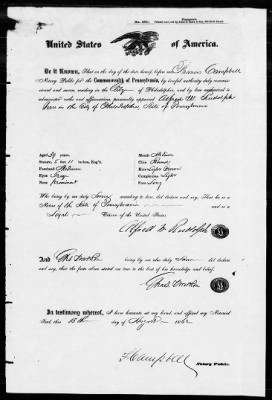 United States of America.
Be it Known, That on the day of the date hereof before me Francis Campbell
Notary Public for the Commonwealth of Pennsylvania, by lawful authority duly
commissioned and sworn residing in the City of Philadelphia, and by law authorized to
administer oaths and affirmations, personally appeared Alfred W. Rudolph
in the City of Philadelphia, State of Pennsylvania
Aged years
Stature, 5 feet 11 inches, Eng's
Forehead Medium
Eyes
Nose Prominent
Mouth Medium
Chin
Hair Light Brown
Complexion Light
Face Long
Who being by me duly Sworn according to law, did declare and say, That he is a
Native of the State of Pennsylvania and is a
Loyal Citizen of the United States.
Alfred W. Rudolph
And being by me also Sworn did declare
and say, that the facts above stated are true to the best of his knowledge and belief.
In testimony whereof, I have hereunto set my hand, and affixed my Notarial
Seal, this 15th day of 1862
F Campbell
Notary Public.